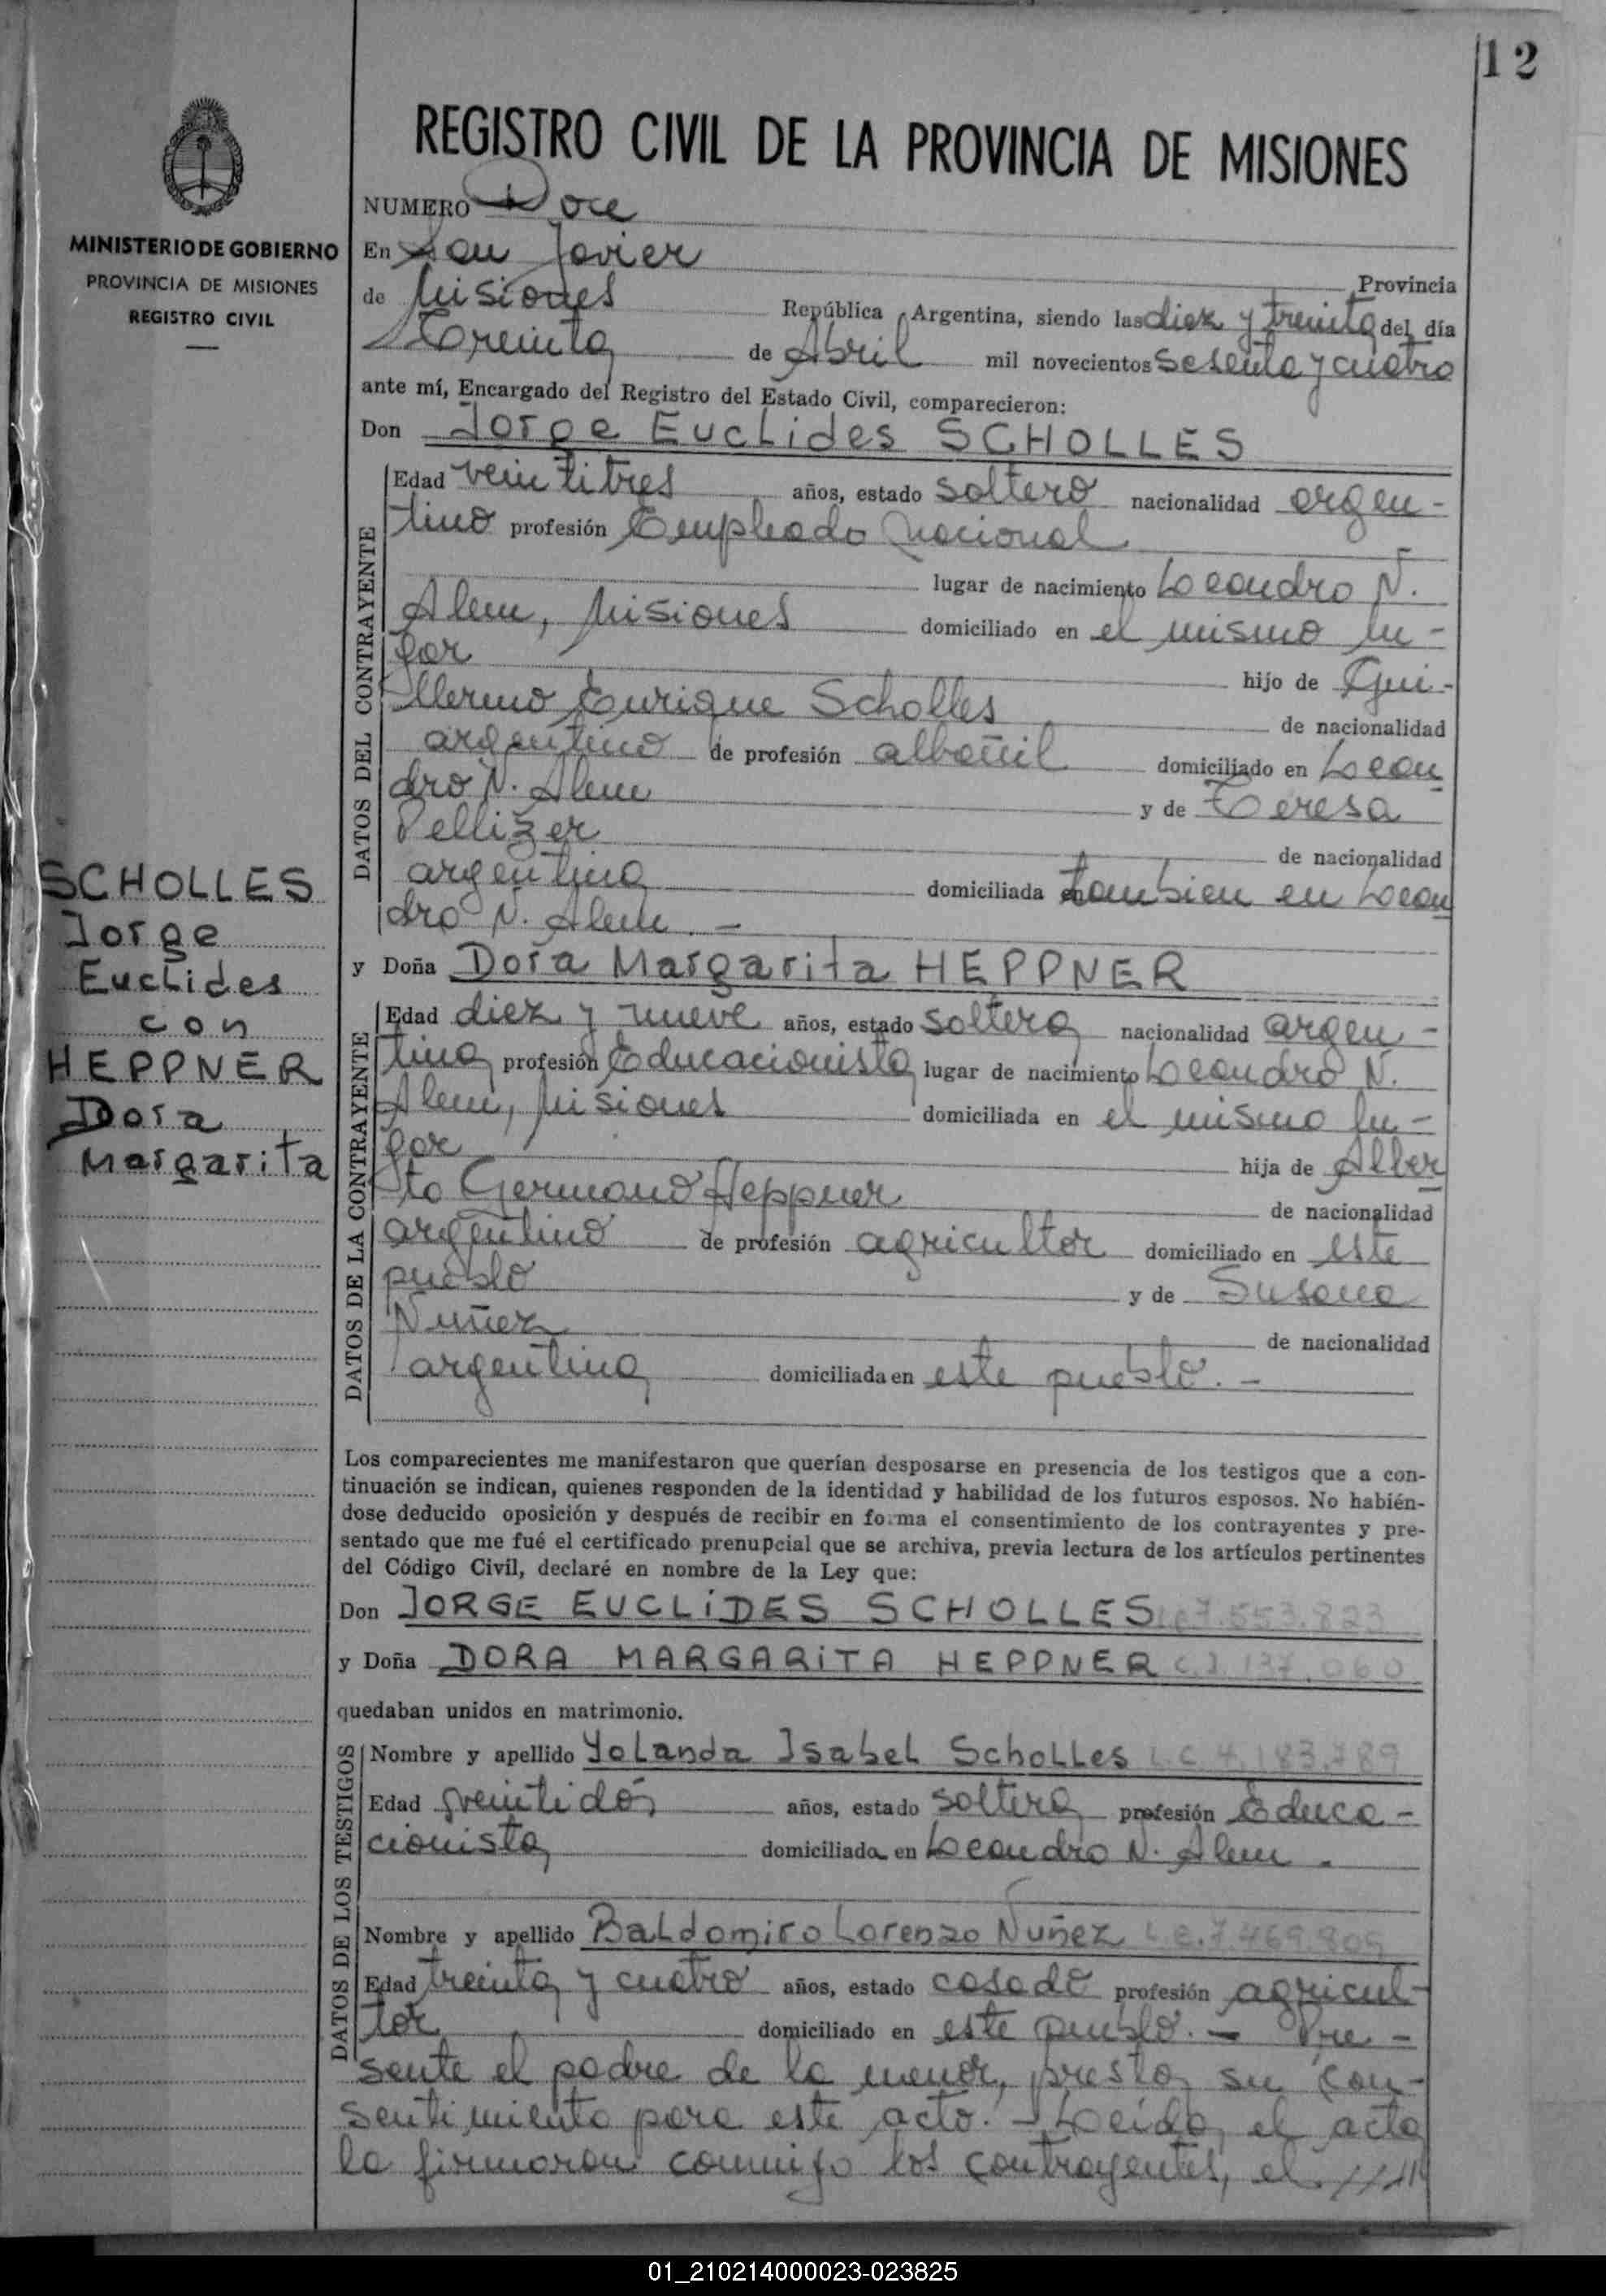 12
REGISTRO CIVIL DE LA PROVINCIA DE MISIONES
MINISTERIO DE GOBIERNO
PROVINCIA DE MISIONES
REGISTRO CIVIL
NUMERO Doce
En San Javier Provincia
de Misiones República Argentina, siendo las diez y treinta del día
Treinta de Abril mil novecientos sesenta y cuatro
ante mí, Encargado del Registro del Estado Civil, comparecieron:
Don Jorge Euclides SCHOLLES
DATOS DEL CONTRAYENTE
Edad veintitres años, estado soltero nacionalidad argen-
tino profesión Empleado Nacional
lugar de nacimiento Leandro N.
Alem, Misiones domiciliado en el mismo lu-
gar hijo de Gui-
llermo Enrique Scholles de nacionalidad
argentino de profesión albañil domiciliado en Lean
dro N. Alem y de Teresa
Pellizer de nacionalidad
argentina domiciliada en tambien en Lean
dro N. Alem. -
SCHOLLES
Jorge
Euclides
con
HEPPNER
Dora
Margarita
y Doña Dora Margarita HEPPNER
DATOS DE LA CONTRAYENTE
Edad diez y nueve años, estado soltera nacionalidad argen-
tina profesión Educacionista lugar de nacimiento Leandro N.
Alem, Misiones domiciliada en el mismo lu-
gar hija de Alber
to Germano Heppner de nacionalidad
argentino de profesión agricultor domiciliado en este
pueblo y de Susana
Nuñez de nacionalidad
argentina domiciliada en este pueblo. -
Los comparecientes me manifestaron que querían desposarse en presencia de los testigos que a con-
tinuación se indican, quienes responden de la identidad y habilidad de los futuros esposos. No habién-
dose deducido oposición y después de recibir en forma el consentimiento de los contrayentes y pre-
sentado que me fué el certificado prenupcial que se archiva, previa lectura de los artículos pertinentes
del Código Civil, declaré en nombre de la Ley que:
Don JORGE EUCLIDES SCHOLLES L.e 7.553.823
y Doña DORA MARGARITA HEPPNER C.I. 137.060
quedaban unidos en matrimonio.
DATOS DE LOS TESTIGOS
Nombre y apellido Yolanda Isabel Scholles L.C 4.183.789
Edad veintidós años, estado soltera profesión Educa-
cionista domiciliada en Leandro N. Alem.
Nombre y apellido Baldomiro Lorenzo Nuñez L.e.7.469.809
DATOS DE LOS TESTIGOS
Edad treinta y cuatro años, estado casado profesión agricul-
tor domiciliado en este pueblo. - Pre-
sente el padre de la menor, presta su con-
sentimiento para este acto. - Leída el acta
la firmaron conmigo los contrayentes, el
01_210214000023-023825